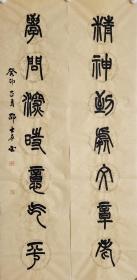 精神到處文章老
學問深時意气平
癸卯